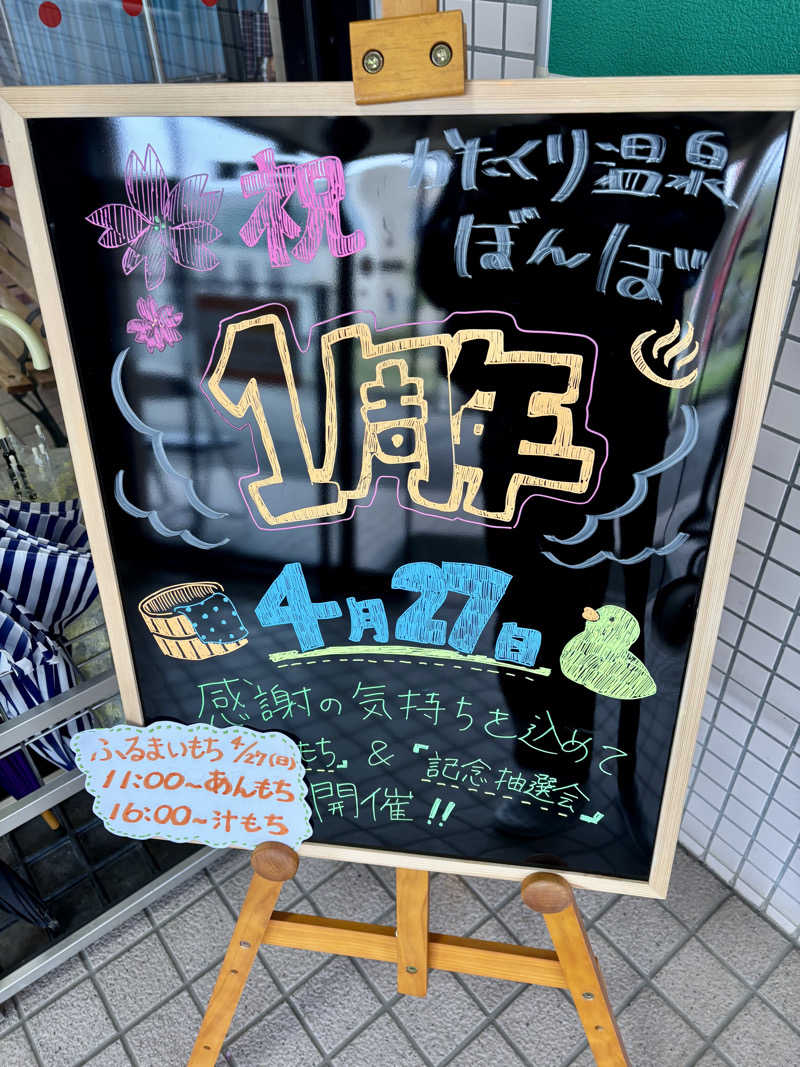 祝
かたくり温泉
ぼんぼ
1周年
4月27日
感謝の気持ちを込めて
もち』&『記念抽選会』
開催!!
ふるまいもち 4/27(日)
11:00~あんもち
16:00~汁もち